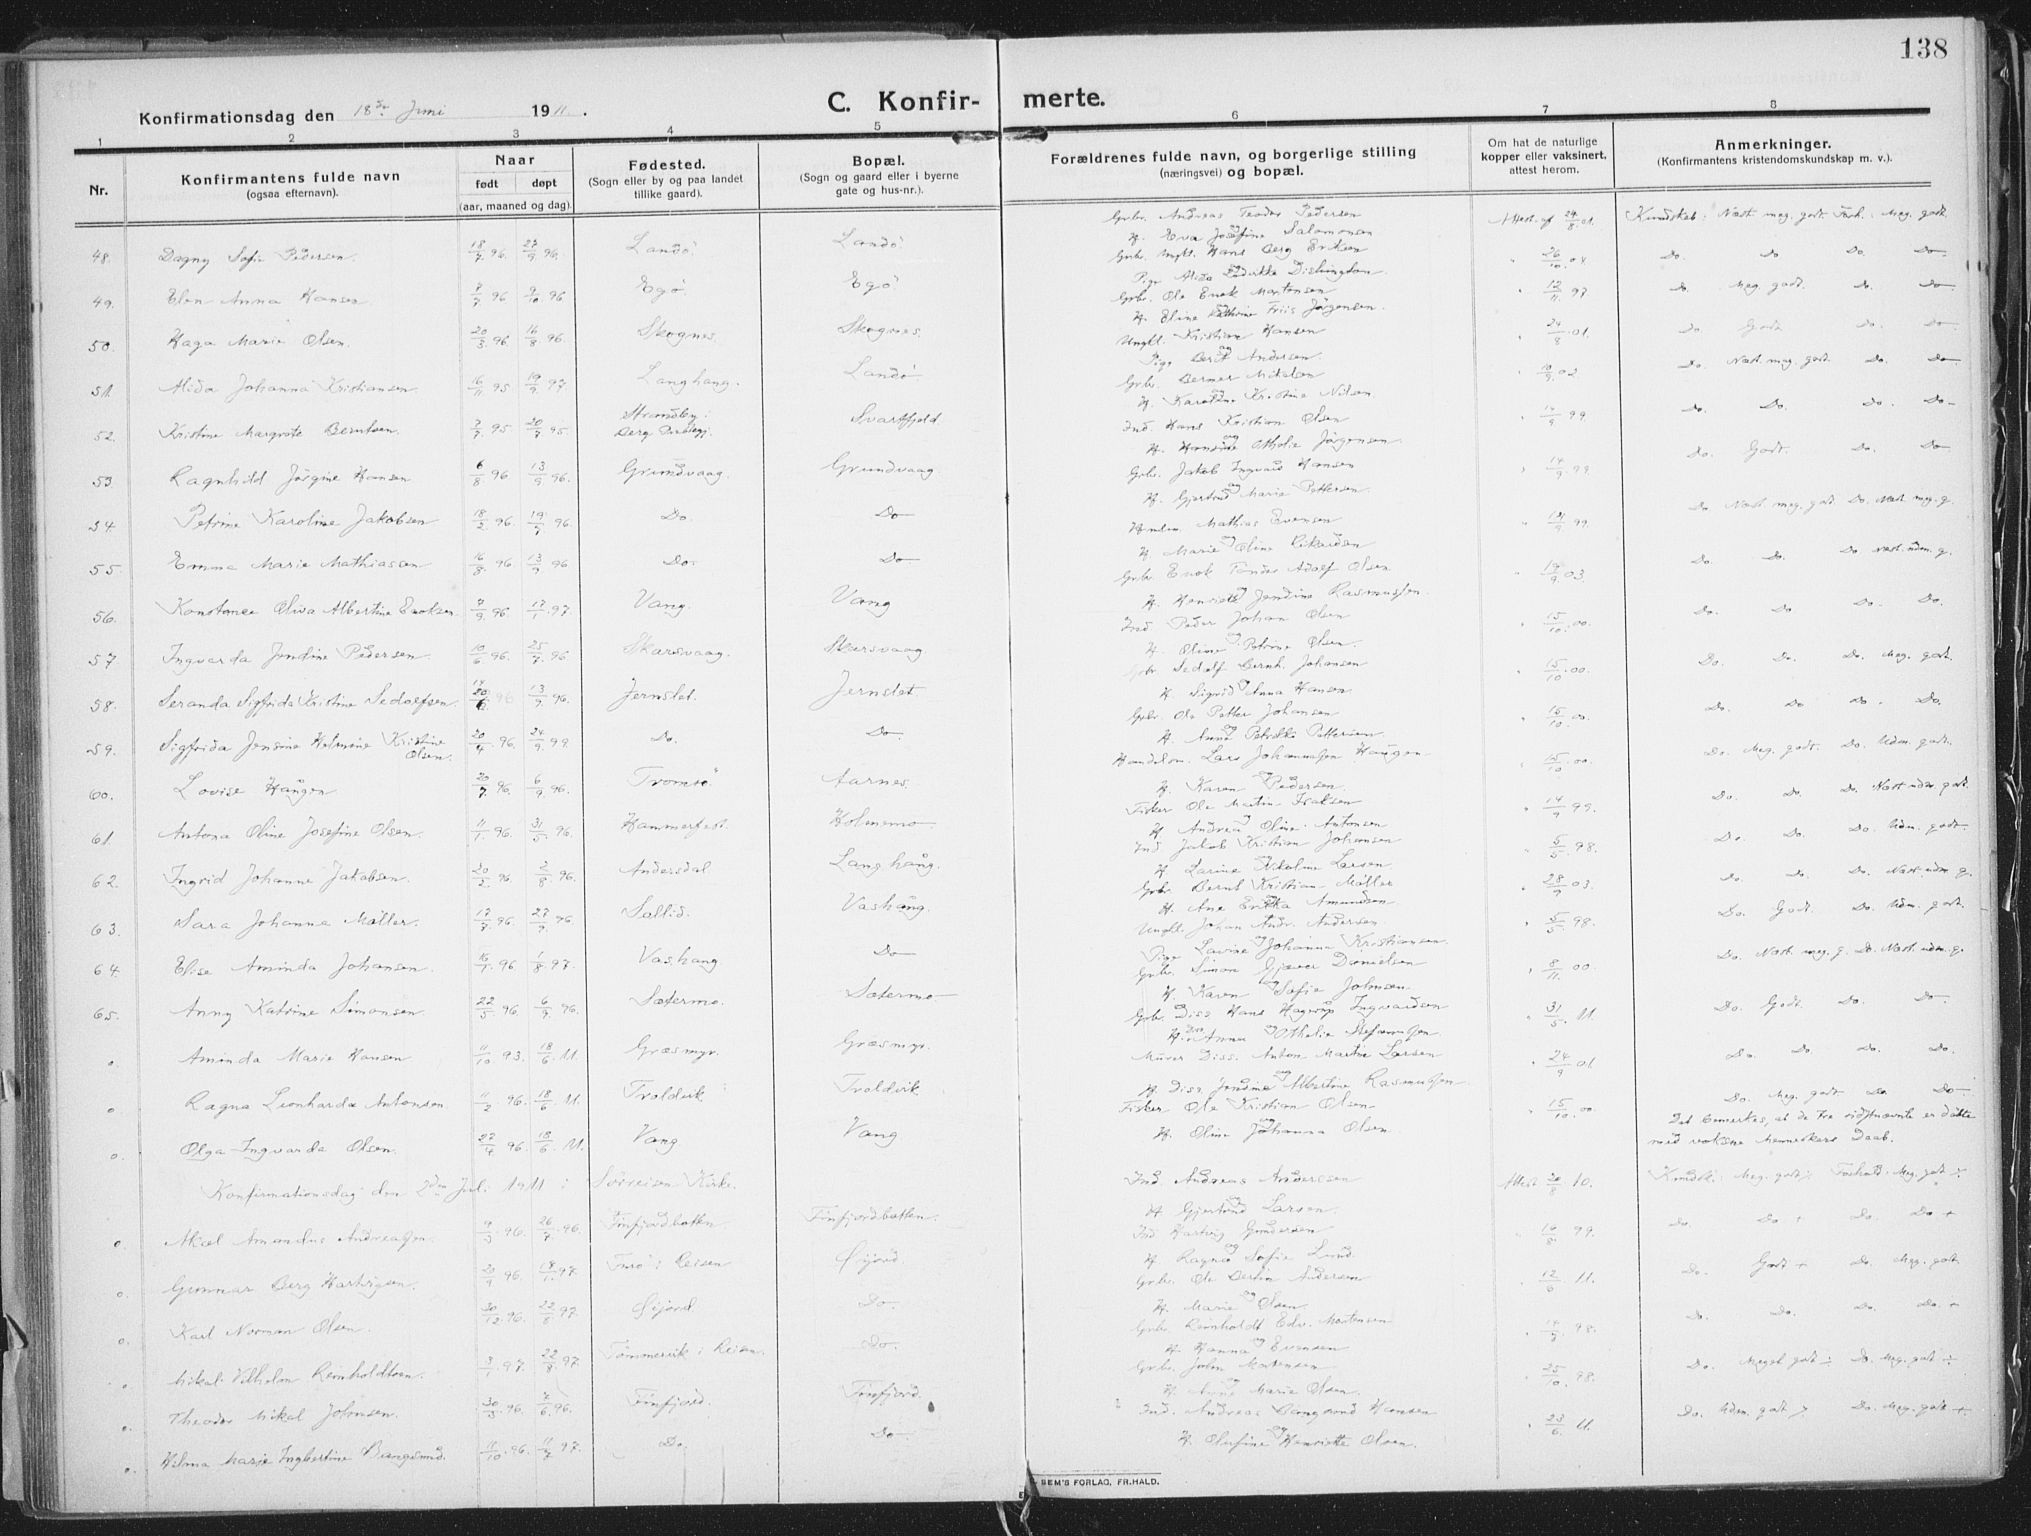 138
C. Konfir- merte.
Konfirmationsdag den 18de Juni 1911.
1 2 3 4 5 6 7 8
Nr.
Konfirmantens fulde navn
(ogsaa efternavn).
Naar
født døpt
(aar, maaned og dag).
Fødested.
(Sogn eller by og paa landet
tillike gaard).
Bopæl.
(Sogn og gaard eller i byerne
gate og hus-nr.).
Forældrenes fulde navn, og borgerlige stilling
(næringsvei) og bopæl.
Om hat de naturlige
kopper eller vaksinert,
attest herom.
Anmerkninger.
(Konfirmantens kristendomskundskap m. v.).
Grbr. Andreas Teodor Pedersen Attest af 24/8 01. Kundskab: Næst meg. godt. Forh.: Meg. godt.
48. Dagny Sofie Pedersen. 18/7 96. 27/9 96. Landö. Landö.
H. Eva Josefine Salamonsen
Grbr. Ungkl. Hans Berg Eriksen 26/10 04 Do. Do Do. Do
49. Elen Anna Hansen. 9/10 96 Egö Egö
Grbr. Ole Enok Martensen 12/11 97 Do. Meg. godt. Do. Do
50. Haga Marie Olsen. 20/3 96. 16/8 96. Skognes. Skognes.
H. Eline Friis Jörgensen.
Ungkl. Kristian Hansen 24/8 01. Do Godt Do. Do
51. Alida Johanna Kristiansen. 16/11 95 19/9 97 Langhang. Landö
Pige Berit Andersen.
Grbr. Berner Mikalsen 10/9 02 Do. Næst meg. godt. Do. Do
52. Kristine Margrete Berntsen. 7/7 95 20/7 95. Strandby i Berg Svartfjeld.
H. Karoline Kristine Nilsen.
Ind. Hans Kristian Olsen 14/9 99 Do. Do. Do. Do
53. Ragnhild Jörgine Hansen 6/8 96 13/9 96. Grundvaag. Grundvaag.
H. Hansine Othelie Jörgensen.
Grbr. Jakob Ingvald Hansen 14/9 99. Do. Godt. Do. Do
54. Petrine Karoline Jakobsen 18/2 96. 19/7 96. Do. Do
H. Gjertrud Marie Pettersen.
Mathias Evensen 99. Do Næst meg. godt. Do. Næst meg. g.
55. Emma Marie Mathiassen 16/8 96. 13/9 96 Do. Do
H. Marie Oline Rikardsen
Grbr. Enok Adolf Olsen 14/9 03. Do. Do. Do. Næst udm. g.
56. Konstance Oliva Albertine Enoksen. 7/9 96. 17/1 97 Vang. Vang
H. Henriette Jendine Rasmussen.
Ind. Peder Johan Olsen 15/10 00. Do. Do Do. Do.
57 Ingvarda Jendine Pedersen. 10/6 96. 25/7 96 Skarsvaag. Skarsvaag.
H. Oline Petrine Olsen.
Grbr. Sedolf Bernh. Johansen 15/10 00 Do. Do. Do. Meg. godt.
58. Seranda Sigfrida Kristine Sedolfsen. 13/9 96. Jernslet. Jernslet
H. Sigrid Anna Hansen
Grbr. Ole Petter Johansen 15/10 00. Do. Do Do. Do.
59. Sigfrida Jensine Helmine Kristine Olsen. 96. 24/9 99. Do. Do
H. Anna Petrikke Pettersen.
Handelsm. Lars Johannessen Haugen 15/10 00. Do. Meg. godt. Do. Udm. godt.
60. Lovise Haugen 20/7 96. 6/9 96. Tromsö Aarnes.
H. Karen Pedersen.
Fisker Ole Martin Isaksen 14/9 99. Do. Do. Do. Næst udm. godt.
61. Antona Oline Josefine Olsen. 11/1 96. 31/5 96. Hammerfest. Holmemo
H. Andrea Oline Antonsen
Ind. Jakob Kristian Johansen 5/5 98. Do. Do. Do. Udm. godt.
62. Ingrid Johanne Jakobsen. 20/2 96. 2/8 96. Andersdal Langhang.
H. Larine Nikoline Larsen
Grbr. Bernt Kristian Möller 28/9 03. Do. Do. Do. Næst udm g.
63. Sara Johanna Möller. 17/7 96. 27/9 96 Sollid. Vashang.
H. Ane Erikka Amundsen
Ungkl. Johan Andr. Andersen. 5/5 98. Do. Godt. Do. Udm. godt.
64. Elise Aminda Johansen. 16/7 96 1/8 97. Vashang Do
Pige Lavine Johanna Kristiansen.
Grbr. Simon Gjæver Danielsen 8/11 00. Do. Næst meg. g. Do. Næst udm. g.
65. Anny Katrine Simonsen. 22/5 96. 6/9 96. Sætermo. Sætermo
H. Karen Sofie Johnsen
Grbr. Diss. Hans Hagerup Ingvardsen 31/5 11. Do. Godt. Do. Do
o. Aminda Marie Hansen 11/10 93. 18/6 11. Græsmyr. Græsmyr.
H. Diss. Anna Othelie Stefanussen.
Murer Diss. Anton Martin Larsen 24/9 01 Do. Do. Do. Do.
o Ragna Leonharda Antonsen 11/2 96. 18/6 11. Troldvik Troldvik
H. Diss. Jendine Albertine Rasmussen.
Fisker Ole Kristian Olsen 15/10 00. Do. Meg. godt Do Do
o. Olga Ingvarda Olsen. 27/4 96. 18/6 11. Vang Vang
H. Oline Johanna Olsen.
Det bemerkes, at de tre sidstnævnte er döbte
med voksne Menneskers Daab.
Konfirmationsdag den 2den Juli 1911 i Sörreisen Kirke.
Ind. Andreas Anderssen Attest 20/8 10. Kundsk.: Meg. godt ÷ Forhold: Meg. godt ÷
o. Aksel Amandus Andreassen. 9/3 96. 26/7 96. Finfjordbotten. Finfjordbotten.
H. Gjertrud Larsen.
Ind. Hartvig Gundersen 16/8 99. Do. Do + Do. Do +
o. Gunnar Berg Hartvigsen. 20/9 96. 18/1 97. i Reisen Öijord
H. Ragna Sofie Lund.
Grbr. Ole Bertin Andersen 12/6 11. Do. Godt + Do. Meg. godt
o. Karl Norman Olsen. 30/12 96. 22/8 97. Öijord Do
H. Marie Olsen.
Grbr. Reinholdt Edv. Mortensen 98. Do. Do. Do. Do +
o. Mikal Vilhelm Reinholdtsen. 3/1 97. 22/8 97. Tömmervik i Reisen. Do.
H. Hanna Evensen
Grbr. Johan Mortensen 25/10 98. Do. Meget godt ÷ Do. Meg. godt ÷
o. Theodor Mikal Johansen. 30/3 96. 7/6 96. Finfjord. Finfjord.
H. Anne Marie Olsen.
Ind. Andreas Bangsund Hansen 23/6 11. Do. Udm. godt Do. Meg. godt +
o. Hilma Marie Ingbertine Bangsund. 11/10 96. 11/7 97. Do. Do
H. Olufine Henriette Olsen.
SEM'S FORLAG, FR.HALD.